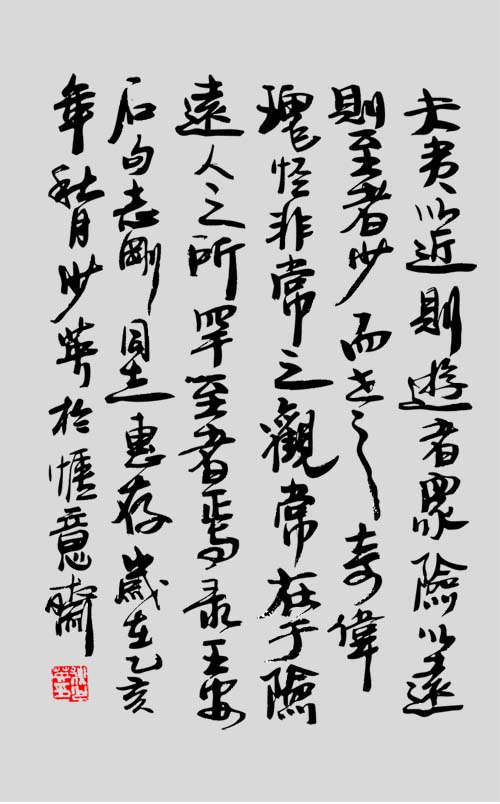 夫夷以近則遊者眾險以遠
則至者少而世之奇偉
瑰怪非常之觀常在于險
遠人之所罕至者焉录王安
石句志剛同志惠存歲在乙亥
年秋月少於愜意齋